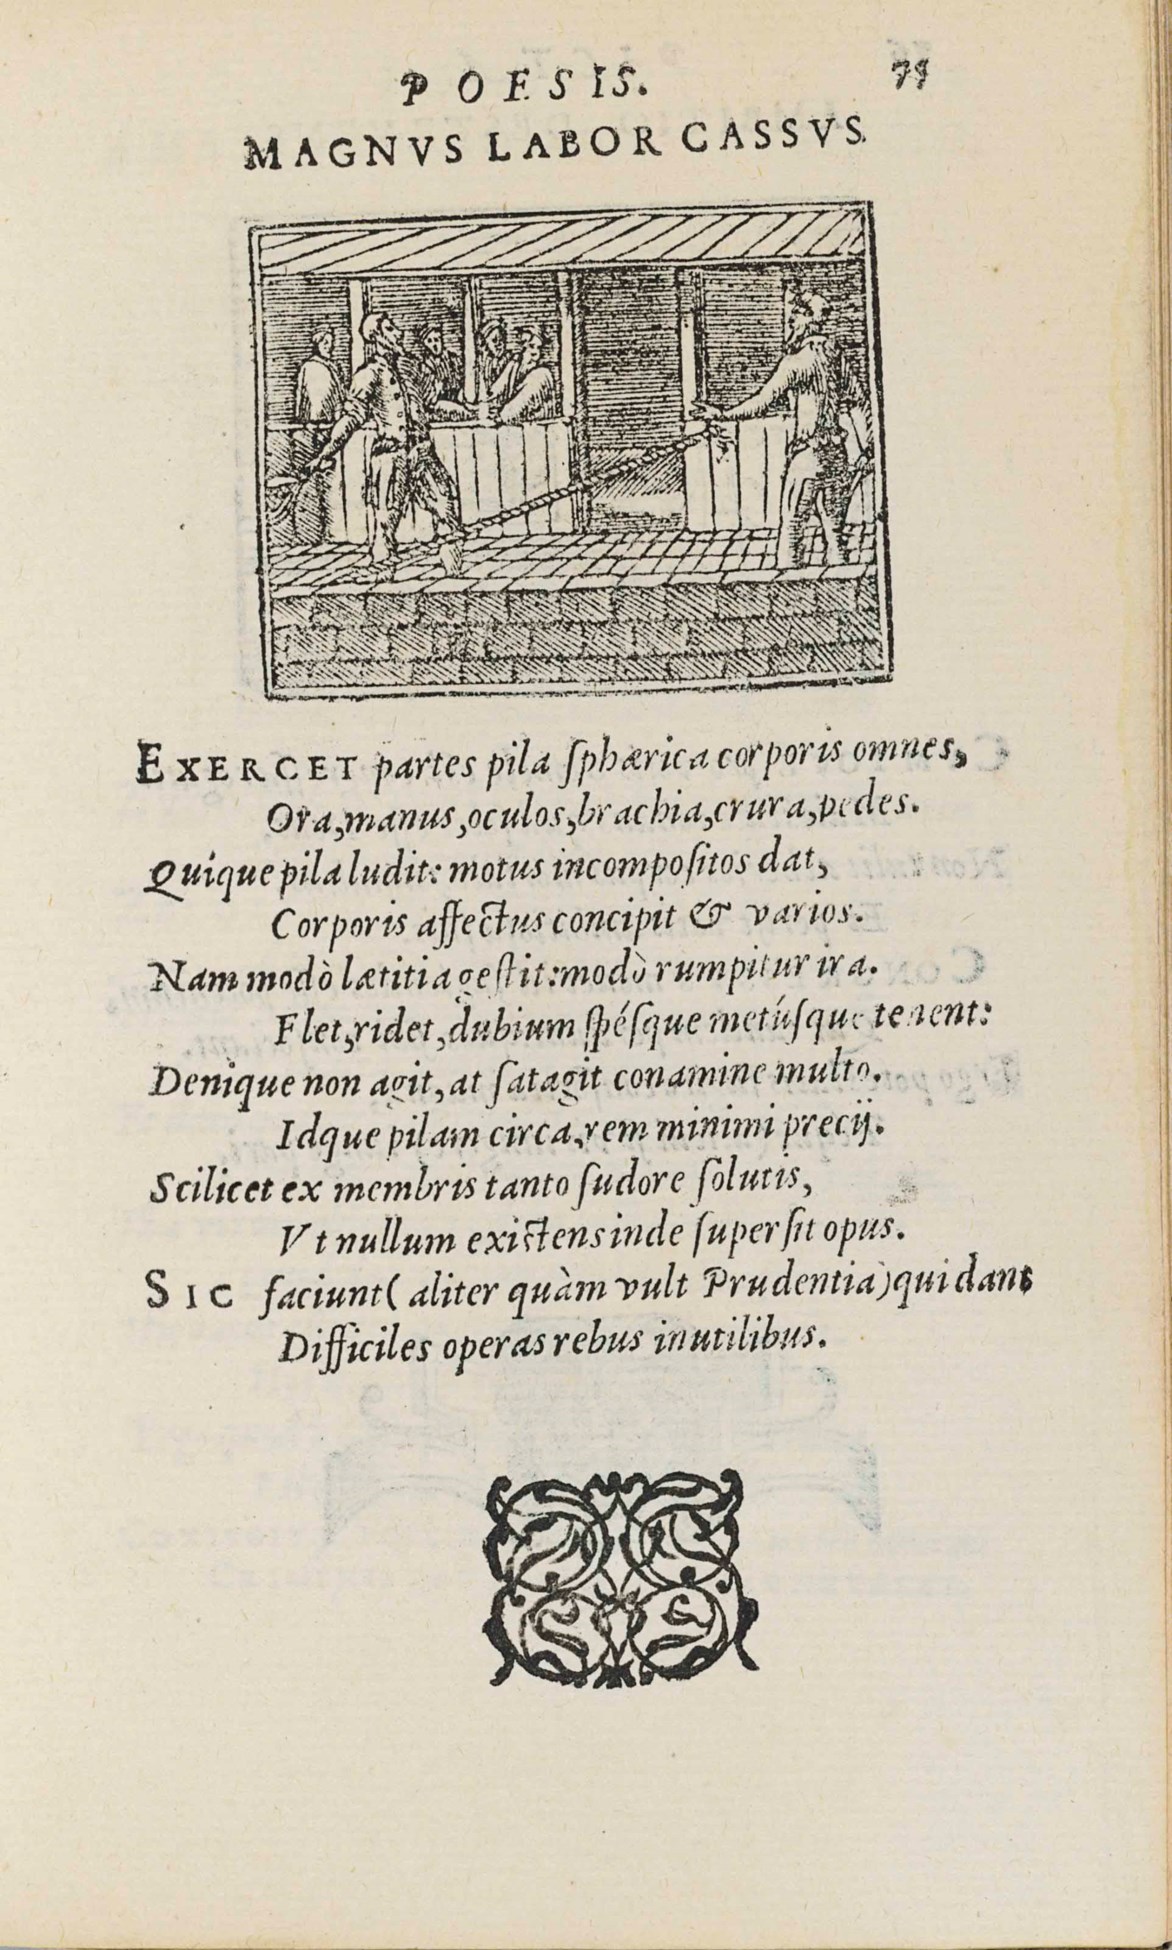 POESIS. 75
MAGNVS LABOR CASSVS.
EXERCET partes pila ſphærica corporis omnes,
Ora, manus, oculos, brachia, crura, pedes.
Quique pila ludit: motus incompoſitos dat,
Corporis affectus concipit & varios.
Nam modò lætitia geſtit: modò rumpitur ira.
Flet, ridet, dubium ſpéſque metúſque tenent:
Denique non agit, at ſatagit conamine multo.
Idque pilam circa, rem minimi precij.
Scilicet ex membris tanto ſudore ſolutis,
Vt nullum exictens inde ſuperſit opus.
SIC faciunt (aliter quàm vult Prudentia) qui dant
Difficiles operas rebus inutilibus.